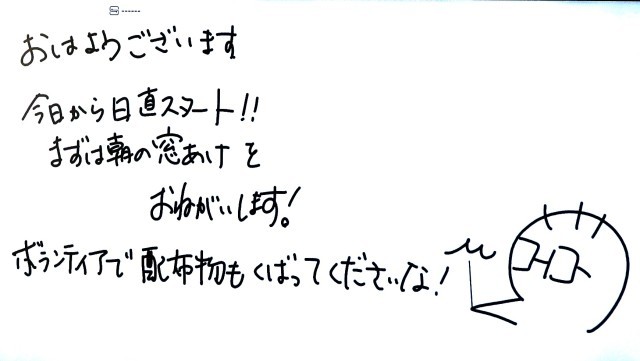 おはようございます
今日から日直スタート!!
まずは朝の窓あけを
おねがいします!
ボランティアで配布物もくばってくださいな!